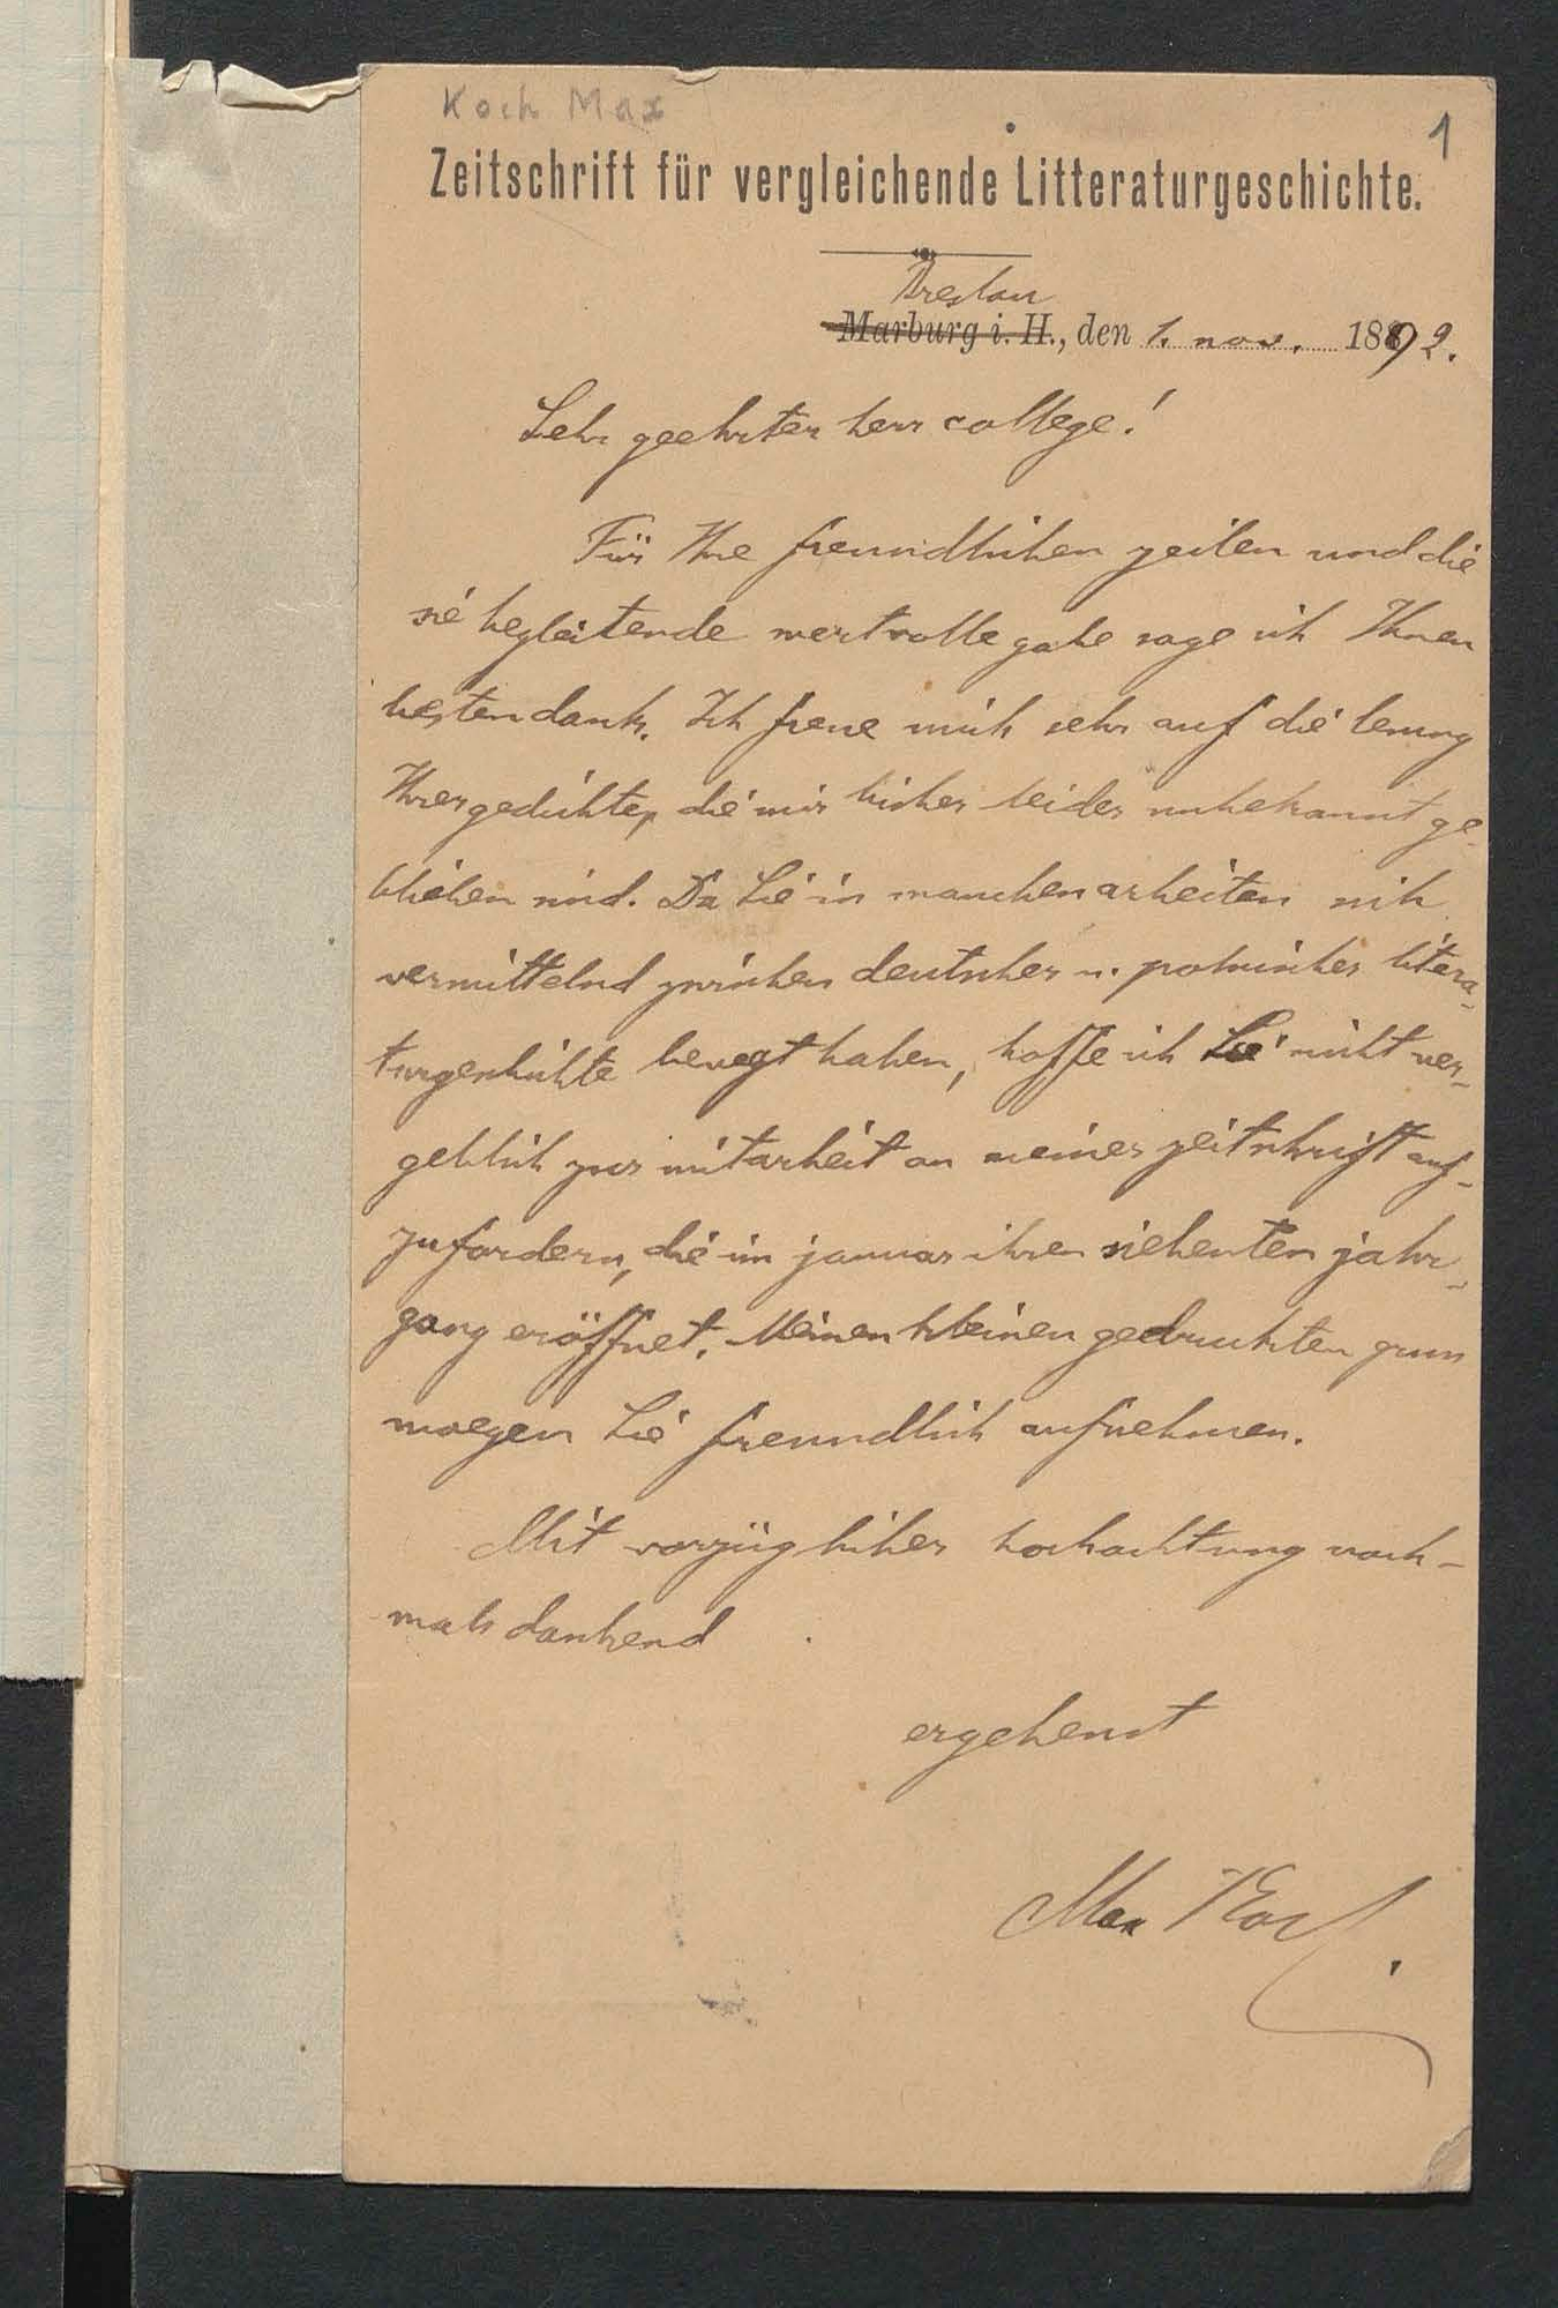 Koch Max
1
Zeitschrift für vergleichende Litteraturgeschichte.
Breslau
Marburg i. H., den 1. nov. 1892.
Sehr geehrter herr college!
Für Ihre freundlichen zeilen und die
sie begleitende wertvolle gabe sage ich Ihnen
besten dank. Ich freue mich sehr auf die lesung
Ihrer gedichte, die mir bisher leider unbekannt ge-
blieben sind. Da Sie in manchen arbeiten sich
vermittelnd zwischen deutscher u. polnischer litera-
turgeschichte bewegt haben, hoffe ich Sie nicht ver-
geblich zur mitarbeit an meiner zeitschrift auf-
zufordern, die im januar ihren siebenten jahr-
gang eröffnet. Meinen kleinen gedruckten gruss
moegen Sie freundlich aufnehmen.
Mit vorzüglicher hochachtung noch-
mals dankend
ergebenst
Max Koch.